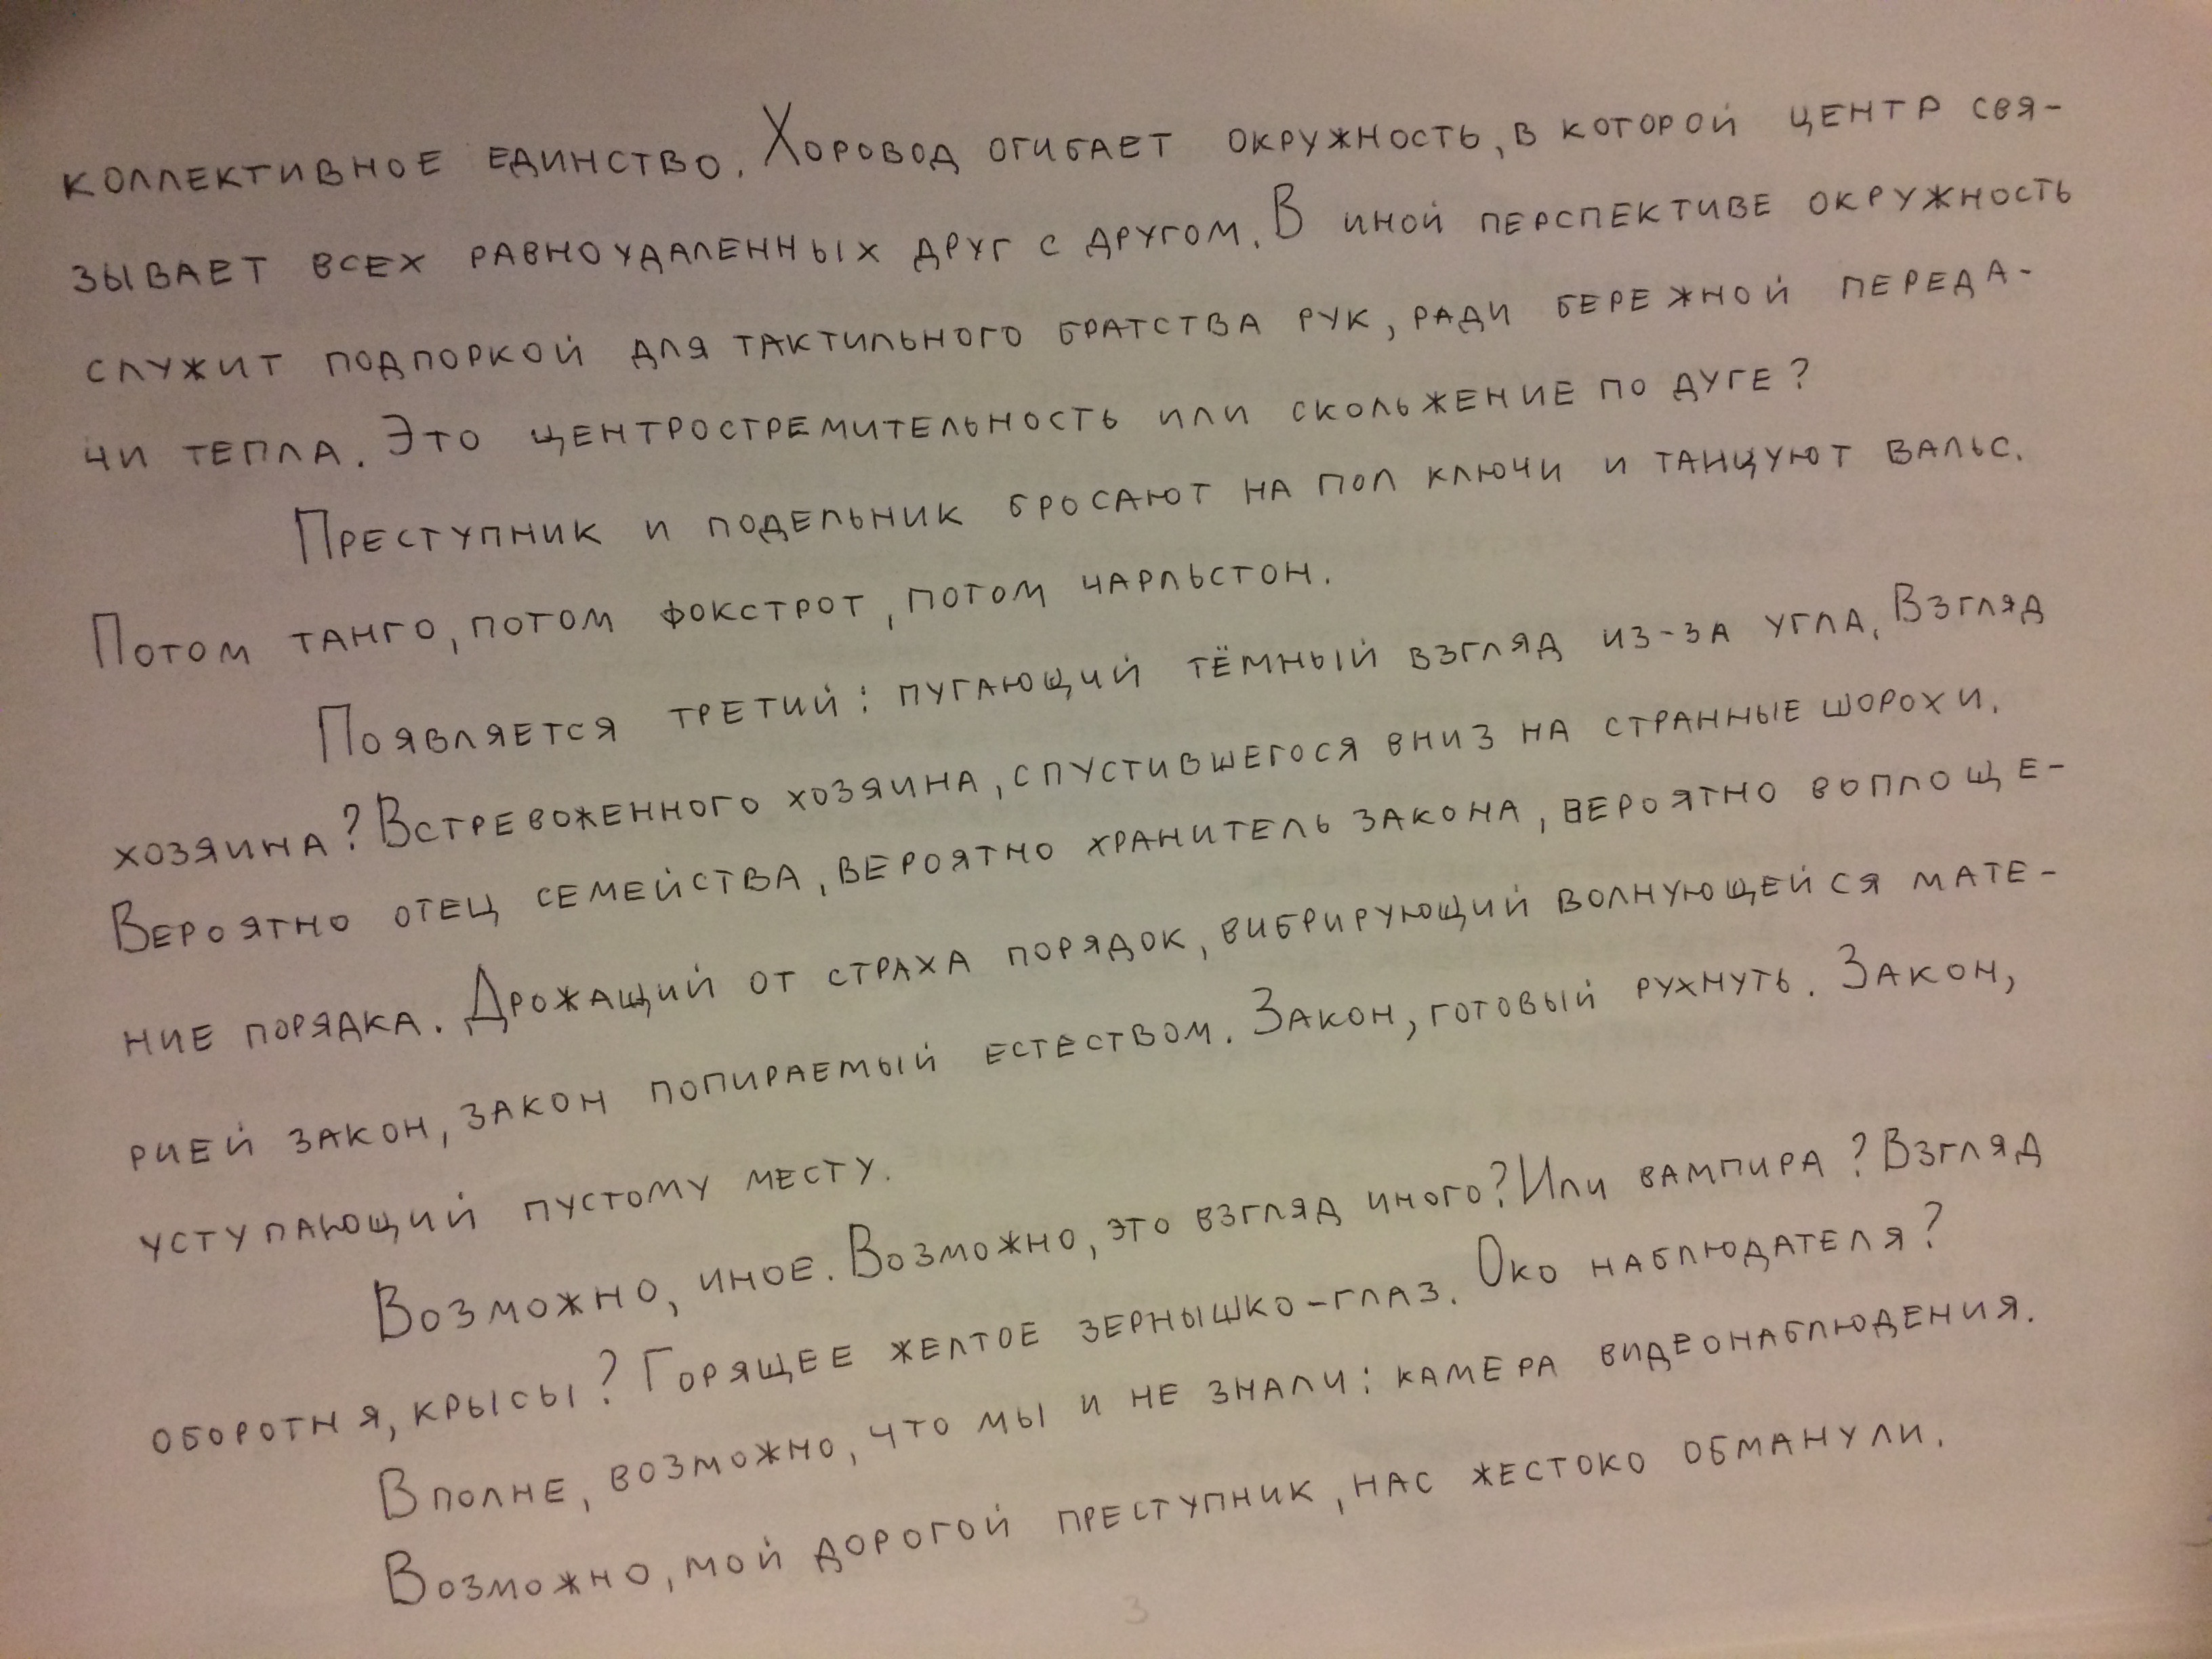 коллективное единство. Хоровод огибает окружность, в которой центр свя-
зывает всех равноудаленных друг с другом. В иной перспективе окружность
служит подпоркой для тактильного братства рук, ради бережной переда-
чи тепла. Это центростремительность или скольжение по дуге?
Преступник и подельник бросают на пол ключи и танцуют вальс.
Потом танго, потом фокстрот, потом чарльстон.
Появляется третий: пугающий тёмный взгляд из-за угла. Взгляд
хозяина? Встревоженного хозяина, спустившегося вниз на странные шорохи.
Вероятно отец семейства, вероятно хранитель закона, вероятно воплоще-
ние порядка. Дрожащий от страха порядок, вибрирующий волнующейся мате-
рией закон, закон попираемый естеством. Закон, готовый рухнуть. Закон,
уступающий пустому месту.
Возможно, иное. Возможно, это взгляд иного? Или вампира? Взгляд
оборотня, крысы? Горящее желтое зернышко-глаз. Око наблюдателя?
Вполне, возможно, что мы и не знали: камера видеонаблюдения.
Возможно, мой дорогой преступник, нас жестоко обманули.
3